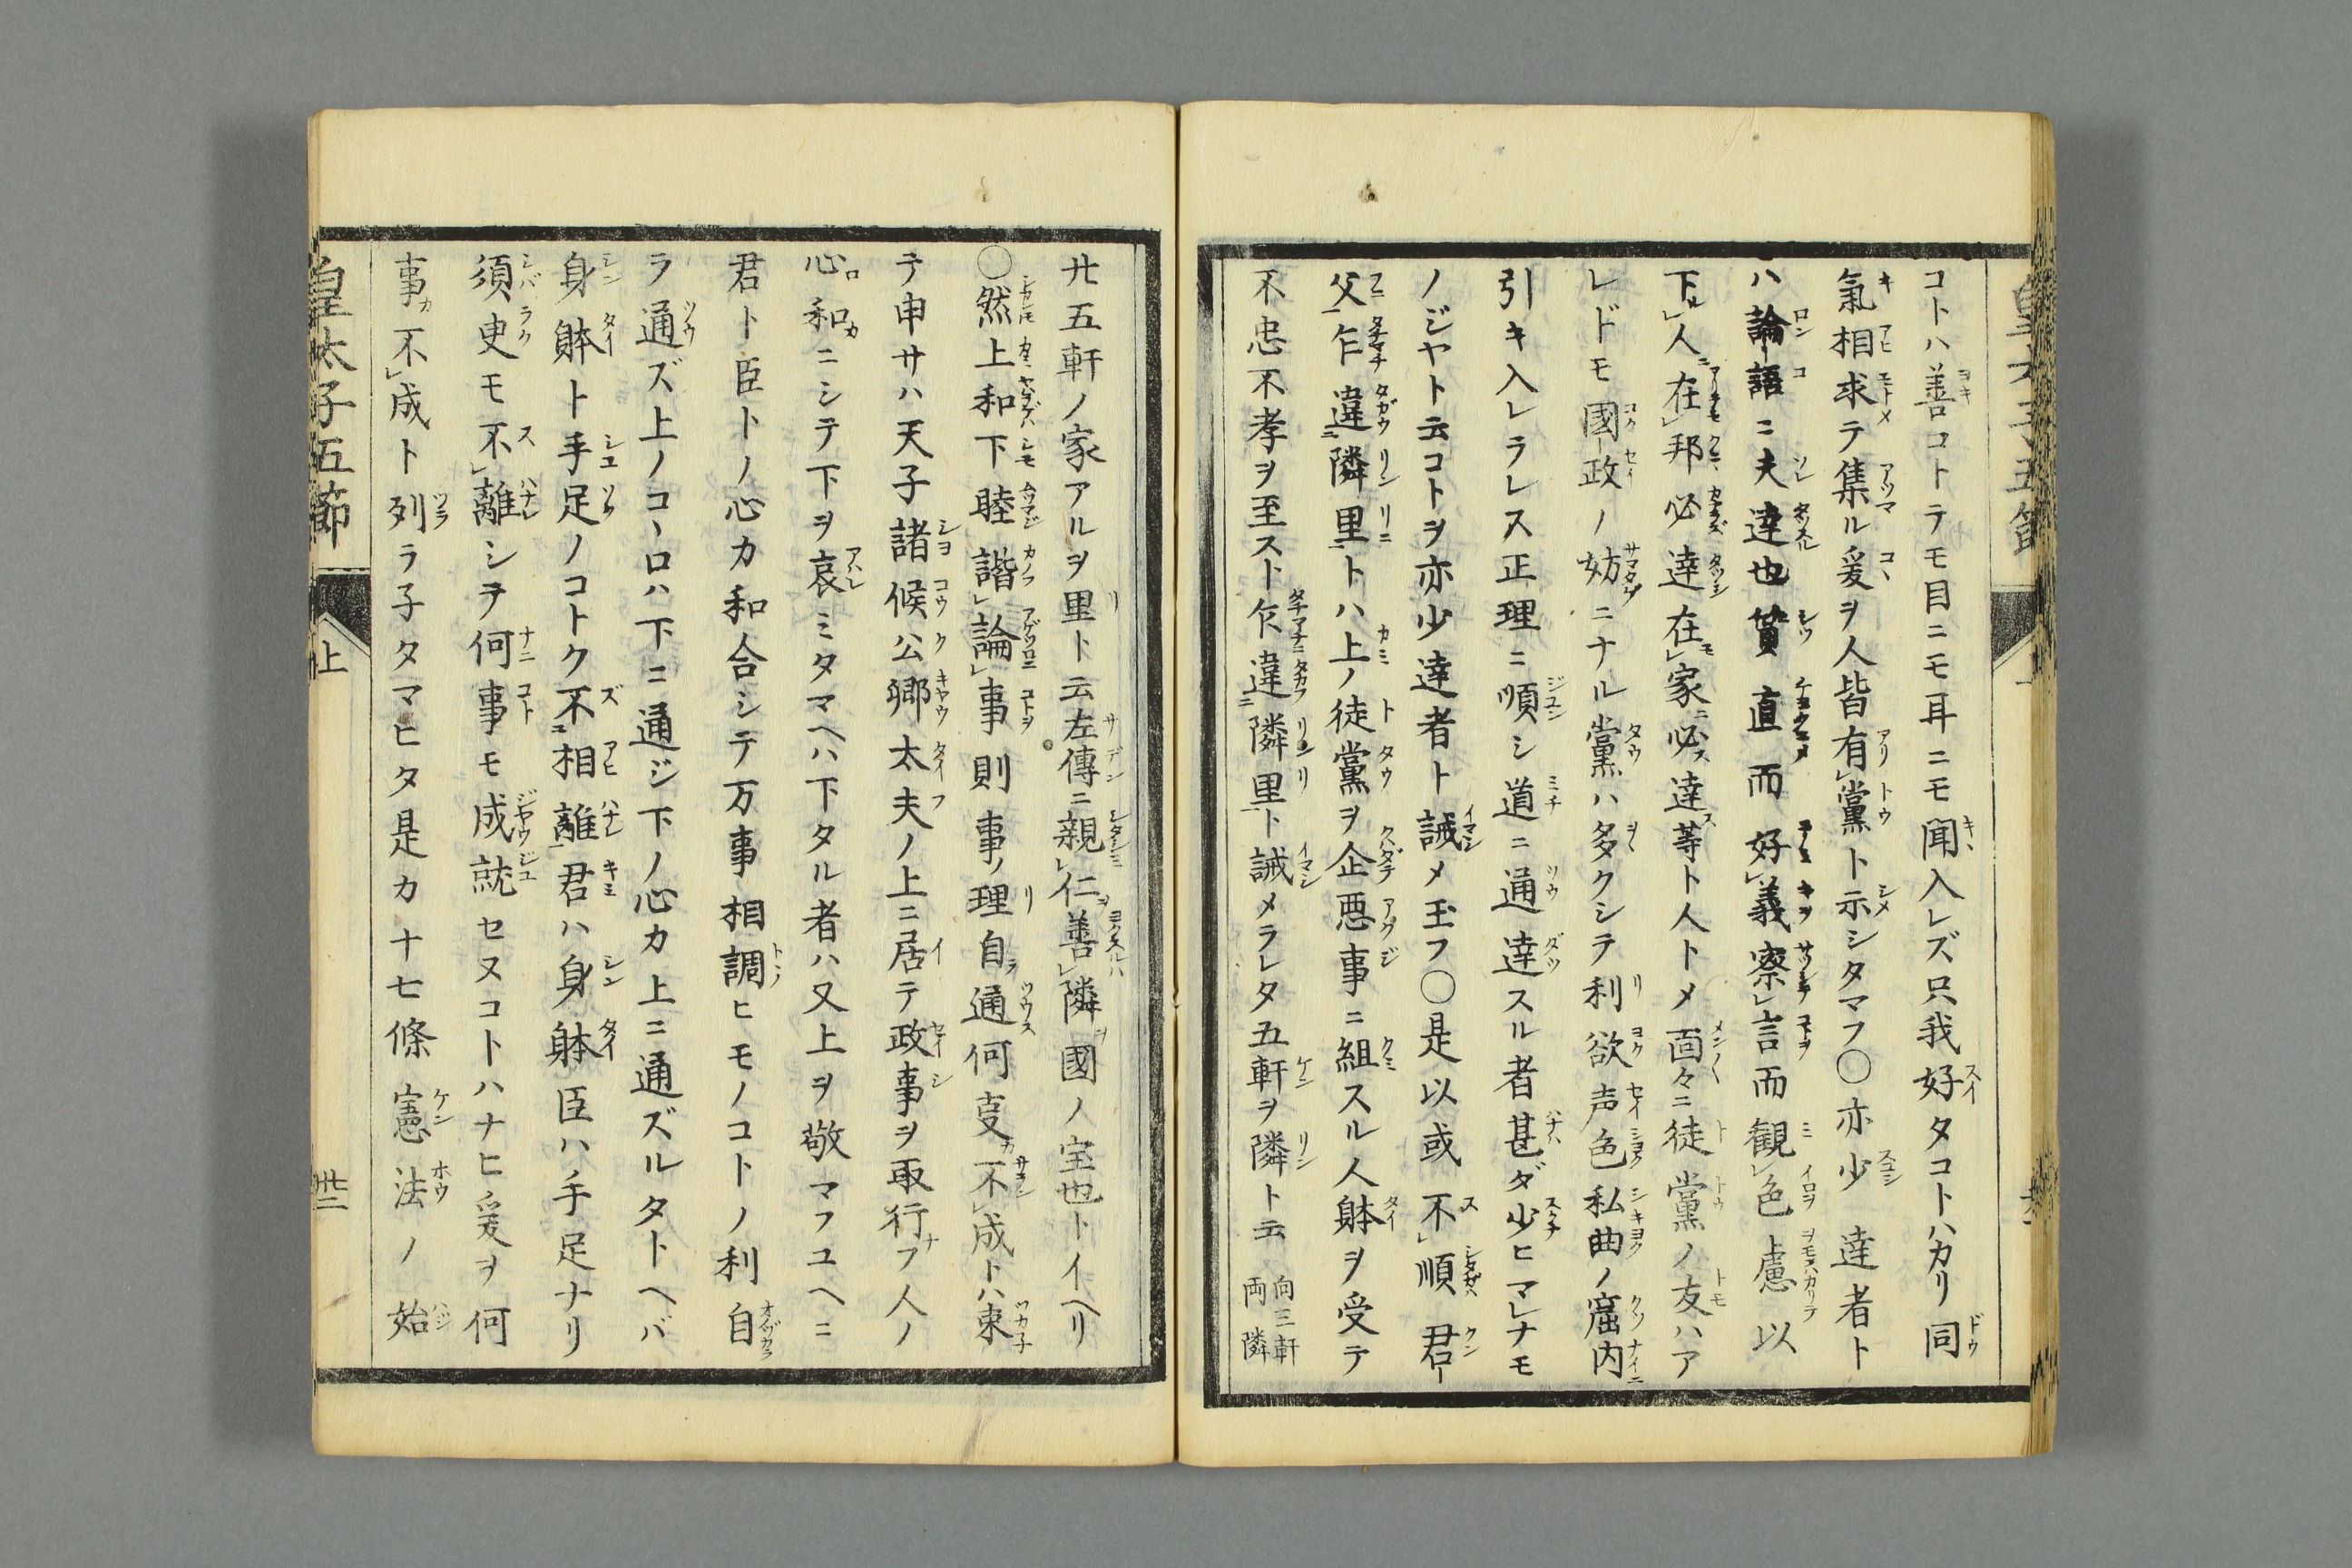 コトハ善コトテモ目ニモ耳ニモ聞入レズ只我好タコトハカリ同
氣相求テ集ル爰ヲ人皆有レ黨ト示シタマフ〇亦少達者ト
ハ論語ニ夫達也質直而好レ義察レ言而観レ色慮以
下レ人在レ邦必達在レ家ニ必ス達ス等ト人トメ面々ニ徒黨ノ友ハア
レドモ國政ノ妨ニナル黨ハ多クシテ利欲声色私曲ノ窟内
引キ入レラレス正理ニ順シ道ニ通達スル者甚ダ少ヒマレナモ
ノジヤト云コトヲ亦少達者ト誡メ玉フ〇是以或不レ順君
父乍違隣里トハ上ノ徒黨ヲ企悪事ニ組スル人躰ヲ受テ
不忠不孝ヲ至スト乍違隣里ト誡メラレタ五軒ヲ隣ト云 向三軒両隣
廿五軒ノ家アルヲ里ト云左傳ニ親レ仁善レ隣國ノ宝也トイヘリ
〇然上和下睦諧レ論レ事則事ノ理自通何叓不レ成トハ束
テ申サハ天子諸候公卿太夫ノ上ニ居テ政事ヲ取行フ人ノ
心和ニシテ下ヲ哀ミタマヘハ下タル者ハ又上ヲ敬マフユヘニ
君ト臣トノ心カ和合シテ万事相調ヒモノコトノ利自
ラ通ズ上ノコヽロハ下ニ通ジ下ノ心カ上ニ通ズルタトヘバ
身躰ト手足ノコトク不相離君ハ身躰臣ハ手足ナリ
須臾モ不レ離シテ何事モ成就セヌコトハナヒ爰ヲ何
事不レ成ト列ラ子タマヒタ是カ十七條憲法ノ始
皇太子五節 上